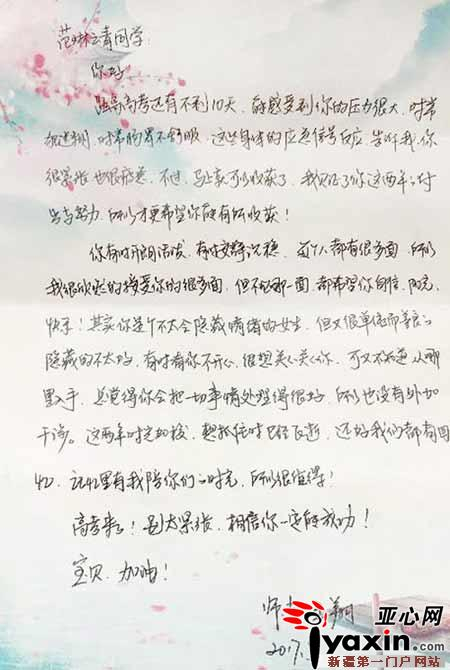 范琳青同学:
你好
距离高考还有不到10天,能感受到你的压力很大,时常
时常肠胃不舒服,这些身体的应急信号反应,告诉我,你
很紧张也很疲惫,不过,马上就可以收获了,我见证了你这两年的付
出与努力,所以才更希望你能有所收获!
你有时开朗活泼,有时文静沉稳,每个人都有很多面,所以
我很欣然的接受你的很多面,但不论哪一面,都希望你自信、阳光、
快乐!其实你是个不太会隐藏情绪的女生,但又很单纯而善良,
隐藏的不太好,有时看你不开心,很想关心关心你,可又不知道从哪
里入手,总觉得你会把一切事情处理得很好,所以也没有外加
干涉。这两年时光如梭,想抓住时已经飞逝,还好我们都有回
忆,记忆里有我陪你们的时光,所以很值得!
高考来了!别太紧张,相信你一定能成功!
宝贝,加油!
师
翔
2017.
亚心网
iyaxin.com
新疆第一门户网站